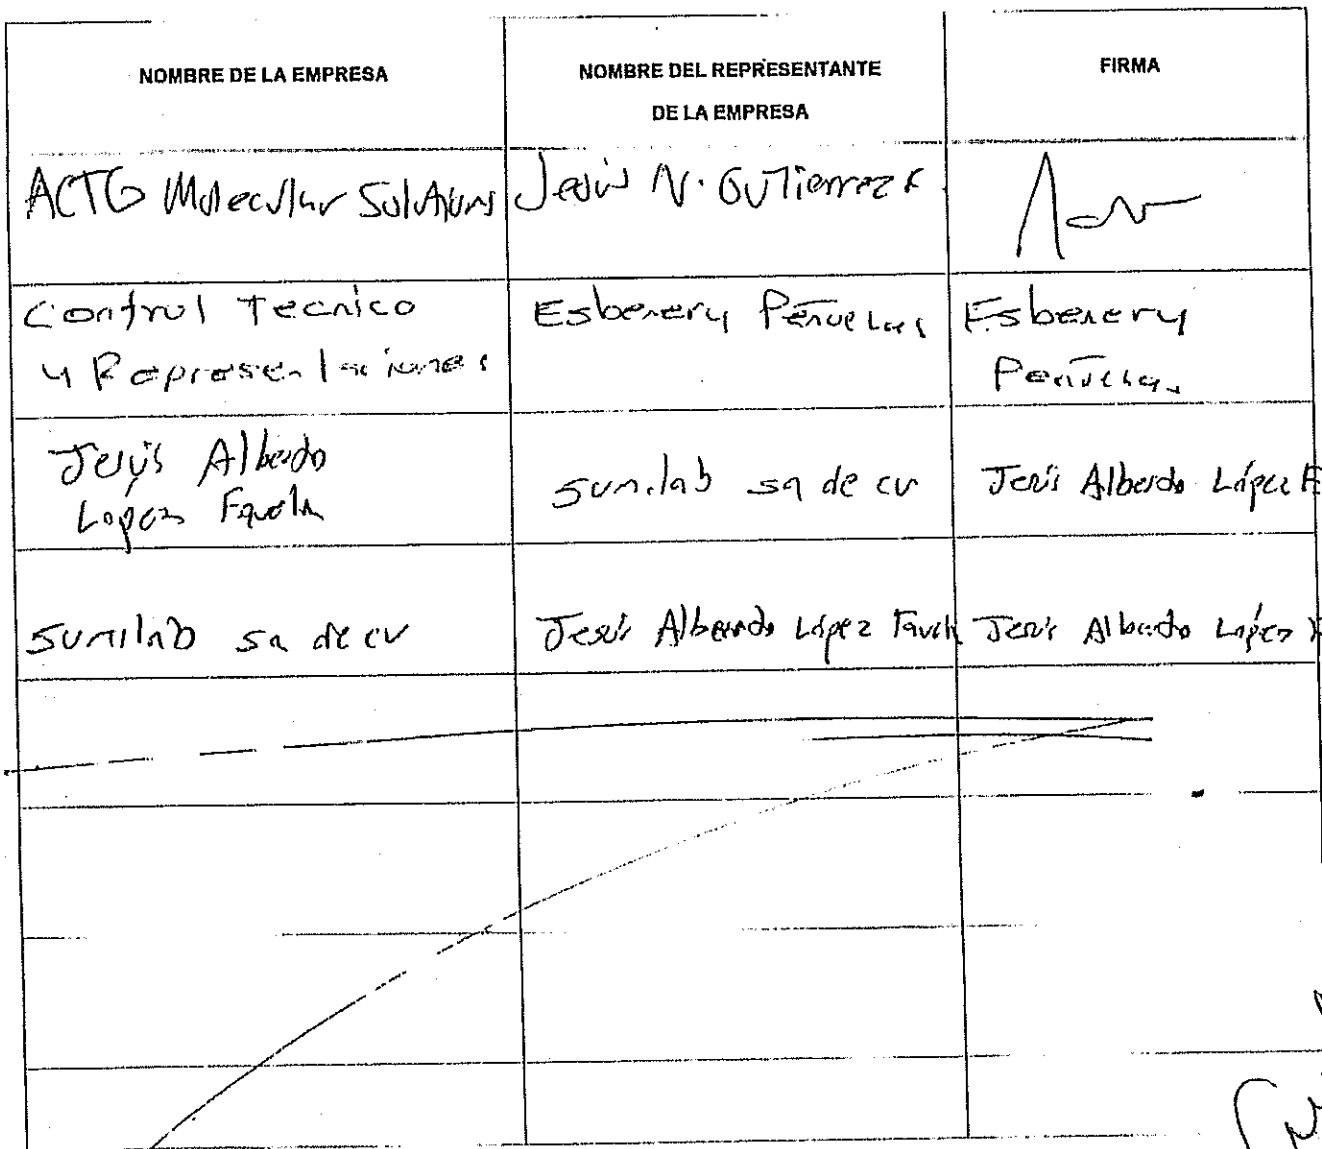 NOMBRE DE LA EMPRESA
NOMBRE DEL REPRESENTANTE
DE LA EMPRESA
FIRMA
ACTG Molecular Solutions
Jesús N. Gutierrez
Control Tecnico
y Representaciones
Esberery Peñuelas
Esberery
Peñuelas
Jesús Alberdo
López Favela
sumilab sa de cv
Jesús Alberdo López F
sumilab sa de cv
Jesús Alberdo López Favela
Jesús Alberto López